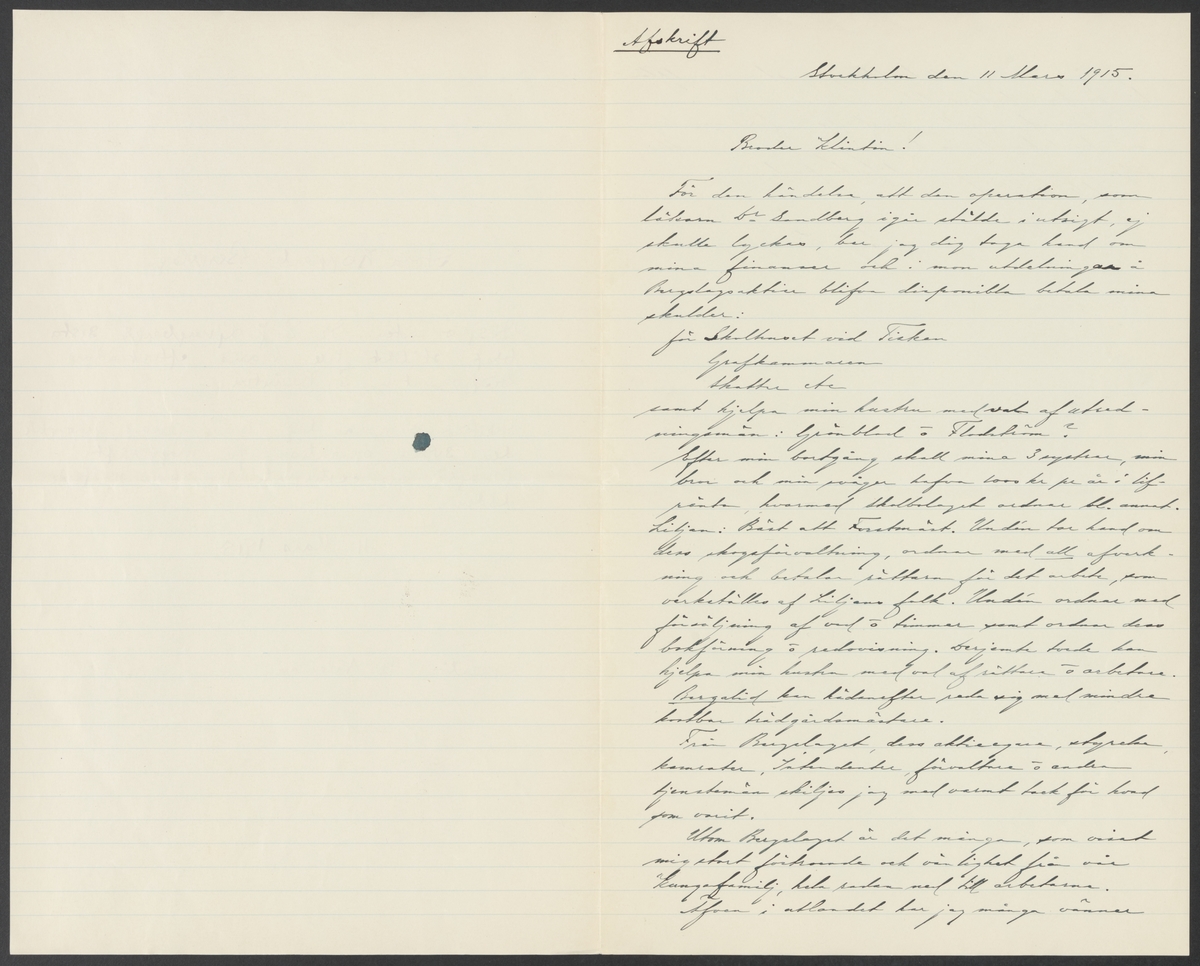 Afskrift
Stockholm den 11 Mars 1915.
Broder Klintin!
För den händelse, att den operation, som
läkaren Dr Sandberg igår stälde i utsigt, ej
skulle lyckas, ber jag dig taga hand om
mina finanser och i mon utdelningar å
Bergslagsaktier blifva disponibla betala mina
skulder:
för Skolhuset vid Tisken
Grafkammaren
Skatter etc
samt hjelpa min hustru med val af utred-
ningsmän: Grönblad o Flodström?
Efter min bortgång skall mina 3 systrar, min
bror och min svåger hafva 1000 kr pr år i lif-
ränta, hvarmed Skolbolaget ordnar bl. annat.
Liljan: Bäst att Forstmäst. Undén tar hand om
dess skogsförvaltning, ordnar med all afverk-
ning och betalar rättarn för det arbete, som
verkställes af Liljans folk. Undén ordnar med
försäljning af ved o timmer samt ordnar dess
bokföring o redovisning. Derjemte torde han
hjelpa min hustru med val af rättare o arbetare.
Bergslid kan hädanefter reda sig med mindre
kostbar trädgårdsmästare.
Från Bergslaget, dess aktieegare, styrelse,
kamrater, Intendenter, förvaltare o andra
tjenstemän skiljes jag med varmt tack för hvad
som varit.
Utom Bergslaget är det många, som visat
mig stort förtroende och vänlighet från vår
Kungafamilj, hela raden ned till arbetarne.
Äfven i utlandet har jag många vänner